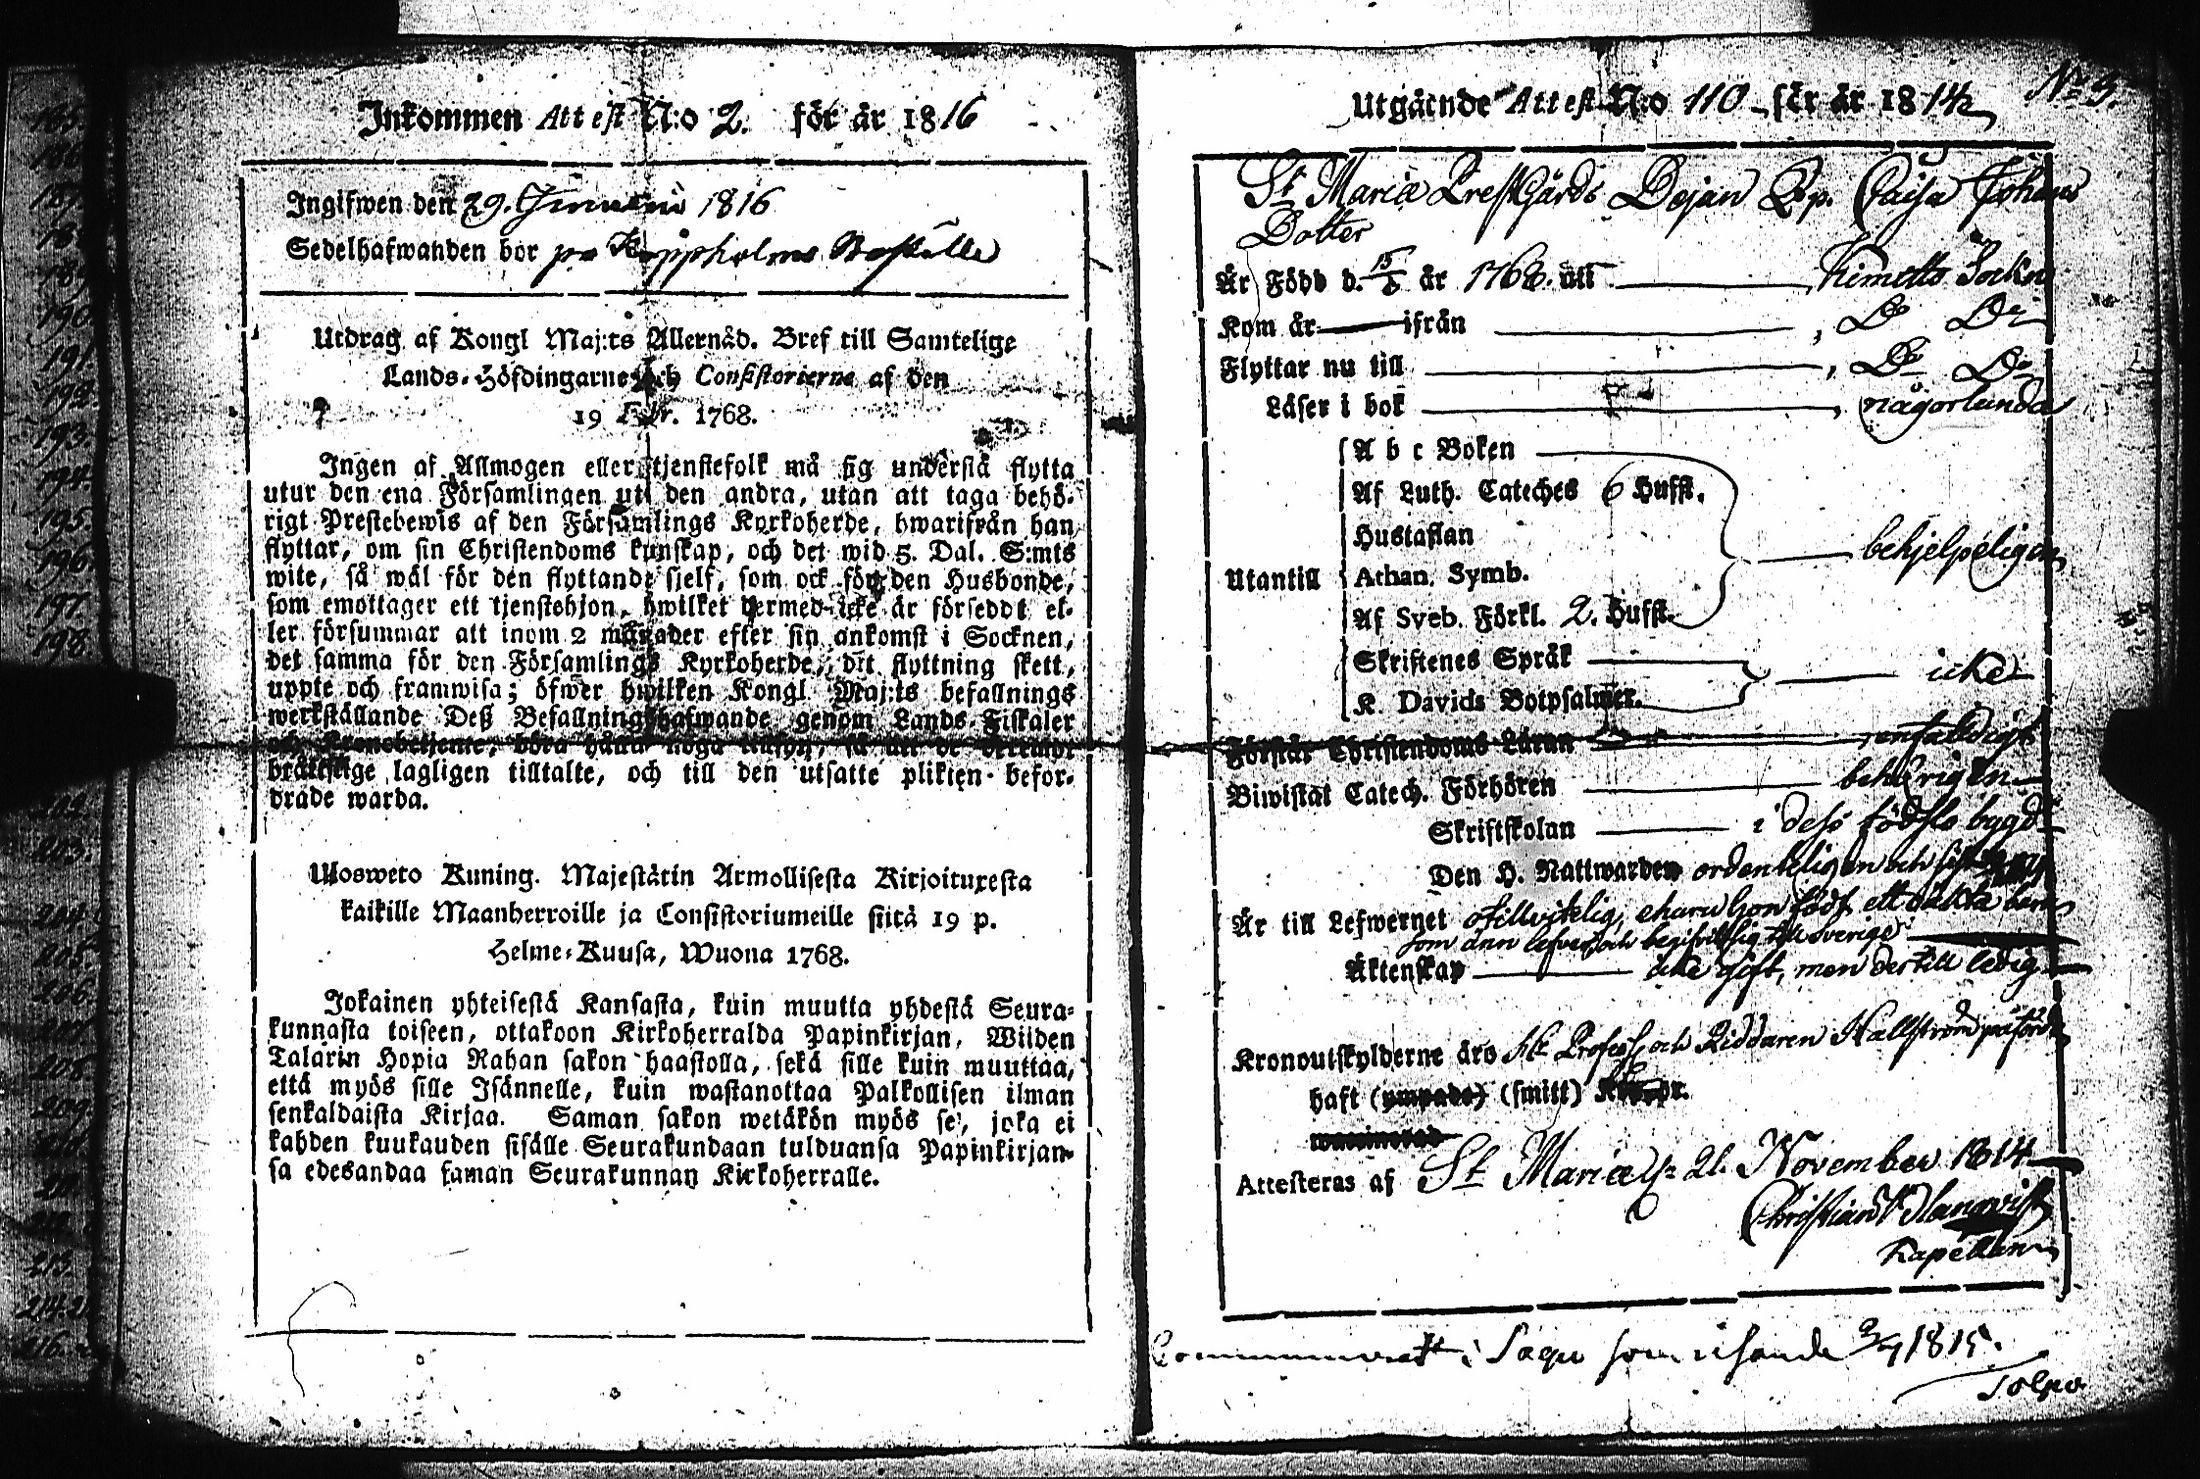 Inkommen Attest N:o 2. för år 1816
Ingifwen den 29. 1816
Sedelhafwanden bor på
Utdrag af Kongl Maj:ts Allernåd. Bref till Samtelige
Lands-Höfdingarne och Consistorierne af den
19 Febr. 1768.
Ingen af Allmogen eller tjenstefolk må sig understå flytta
utur den ena Församlingen uti den andra, utan att taga behö-
rigt Prestebewis af den Församlings Kyrkoherde, hwarifrån han
flyttar, om sin Christendoms kunskap, och det wid 5. Dal. S:mts
wite, så wäl för den flyttande sjelf, som ock för den Husbonde,
som emottager ett tjenstehjon, hwilket dermed icke är försedt el-
ler försummar att inom 2 månader efter sin ankomst i Socknen,
det samma för den Församlings Kyrkoherde, dit flyttning skett,
uppte och framwisa; öfwer hwilken Kongl Maj:ts befallnings
werkställande Deß Befallningshafwande genom Lands-Fiskaler
och Kronobetjente, böra hålla noga
bräktelige lagligen tilltalte, och till den utsatte plikten befor-
drade warda.
Ulosweto Kuning. Majestätin Armollisesta Kirjoituxesta
kaikille Maanherroille ja Consistoriumeille siitä 19 p.
Helme-Kuusa, Wuona 1768.
Jokainen yhteisestä Kansasta, kuin muutta yhdestä Seura-
kunnasta toiseen, ottakoon Kirkoherralda Papinkirjan, Wiiden
Talarin Hopia Rahan sakon haastolla, sekä sille kuin muuttaa,
että myös sille Isännelle, kuin wastanottaa Palkollisen ilman
senkaldaista Kirjaa. Saman sakon wetäkön myös se, joka ei
kahden kuukauden sisälle Seurakundaan tulduansa Papinkirjan-
sa edesandaa saman Seurakunnan Kirkoherralle.
N:o 3.
Utgående Attest N:o 110 för år 1814
St Mariæ PrestGårds Dejan Cajsa Johans
Dotter
Är Född d. 15 år 1768. uti Kimitto Sockn
Kom år ifrån Do Do
Flyttar nu till Do Do
Läser i bok någorlunda
Utantill
A b c Boken
Af Luth. Cateches 6 Huffst.
Hustaflan
Athan. Symb.
Af Sveb. Förkl. 2. Huffst.
behjelpeligen
Skriftenes Språk
K. Davids Botpsalmer.
icke
Förstår Christendoms Läran enfaldigt
Biwistat Catech. Förhören behörigen
Skriftskolan i dess födslo bygd
Den H. Nattwarden ordenteligen och
Är till Lefwernet ehuru hon födt ett oäkta barn
som ännu lefver och begifvit sig till Sverige
Äktenskap icke gift, men dertill ledig
Kronoutskylderne äro Professorn och Riddaren Hällström påförda
haft (ympade) (smitt) Koppor.
Attesteras af St Mariæ 21. November 1814
Christian
Kapellan
Communicerat i Sagu som resande 1815.
Tolpo